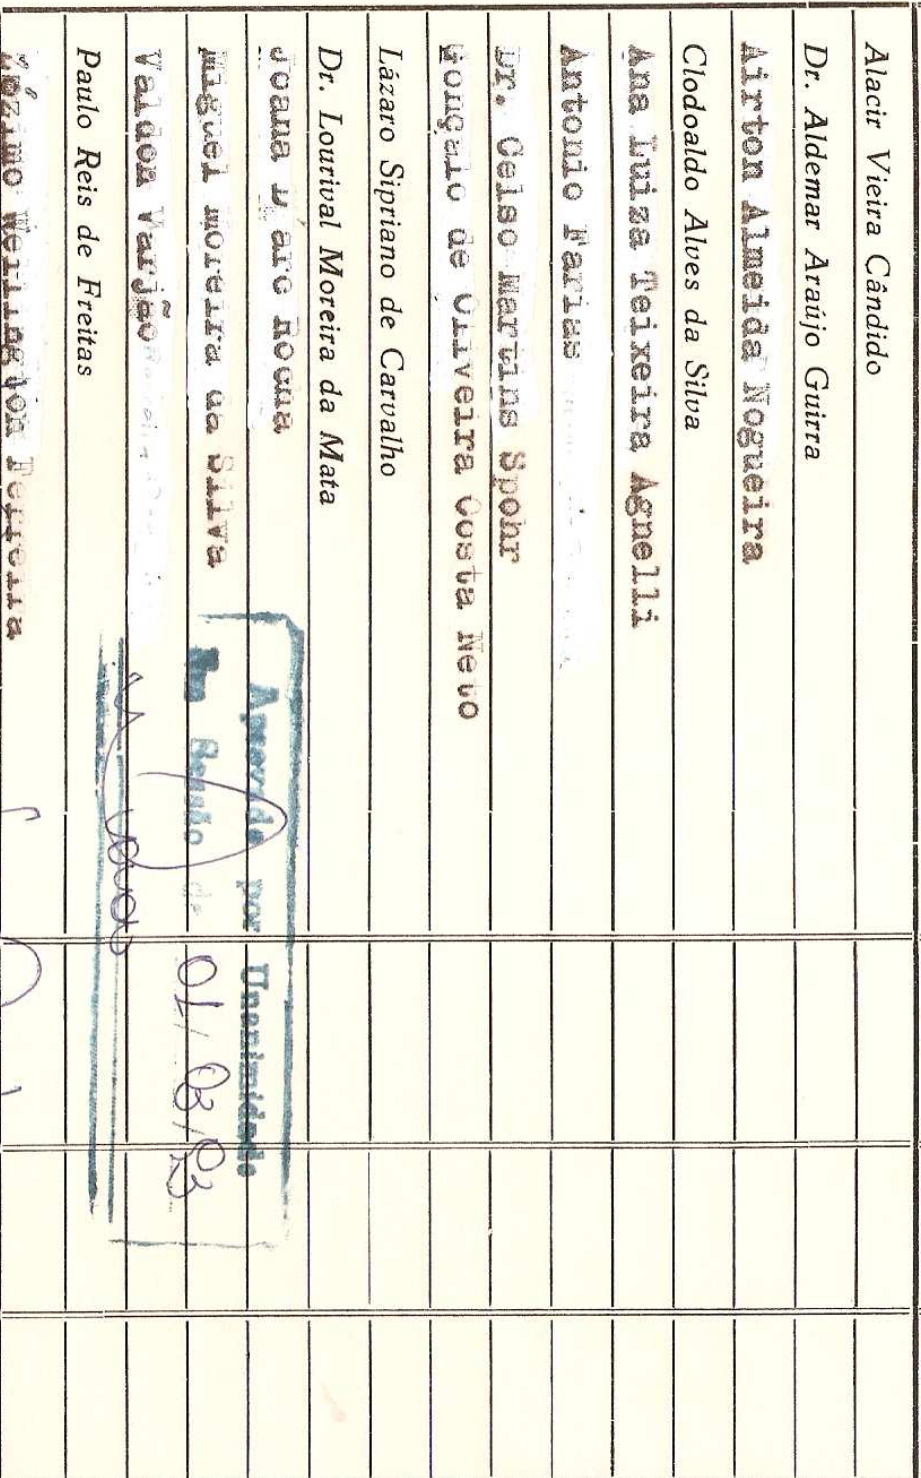 Alacir Vieira Cândido
Dr. Aldemar Araújo Guirra
Airton Almeida Nogueira
Clodoaldo Alves da Silva
Ana Luiza Teixeira Agnelli
Antonio Farias
Dr. Celso Martins Spohr
Gonçalo de Oliveira Costa Neto
Lázaro Sipriano de Carvalho
Dr. Lourival Moreira da Mata
Joana D'arc Rocha
Miguel moreira da Silva
Valdon Varjão
Paulo Reis de Freitas
Wellington Ferreira
Aprovado por Unanimidade
Sessão de 01/03/93